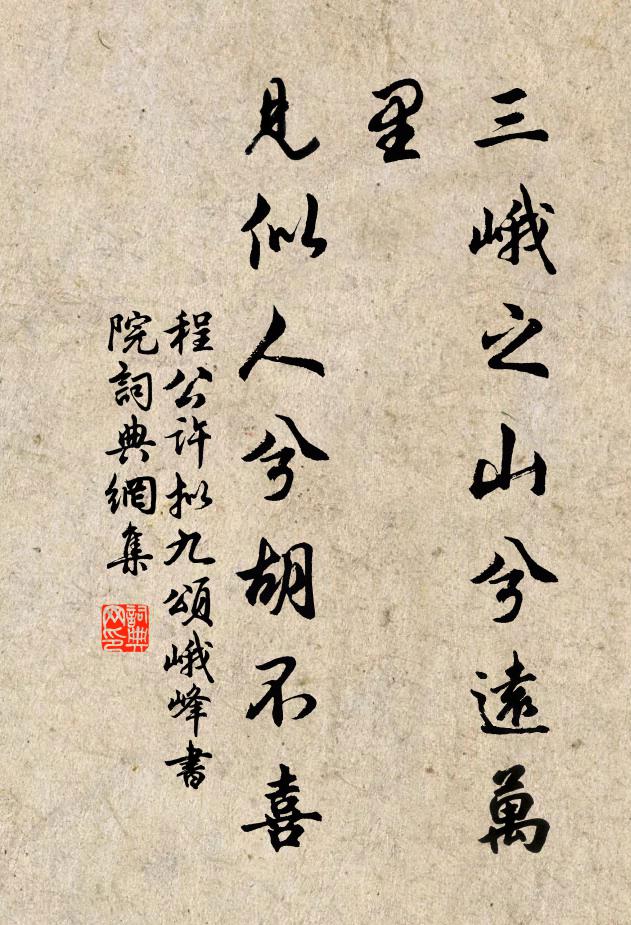 三峨之山兮遠萬
里
見似人兮胡不喜
程公許拟九頌峨峰書
院詞典網集
詞典网印